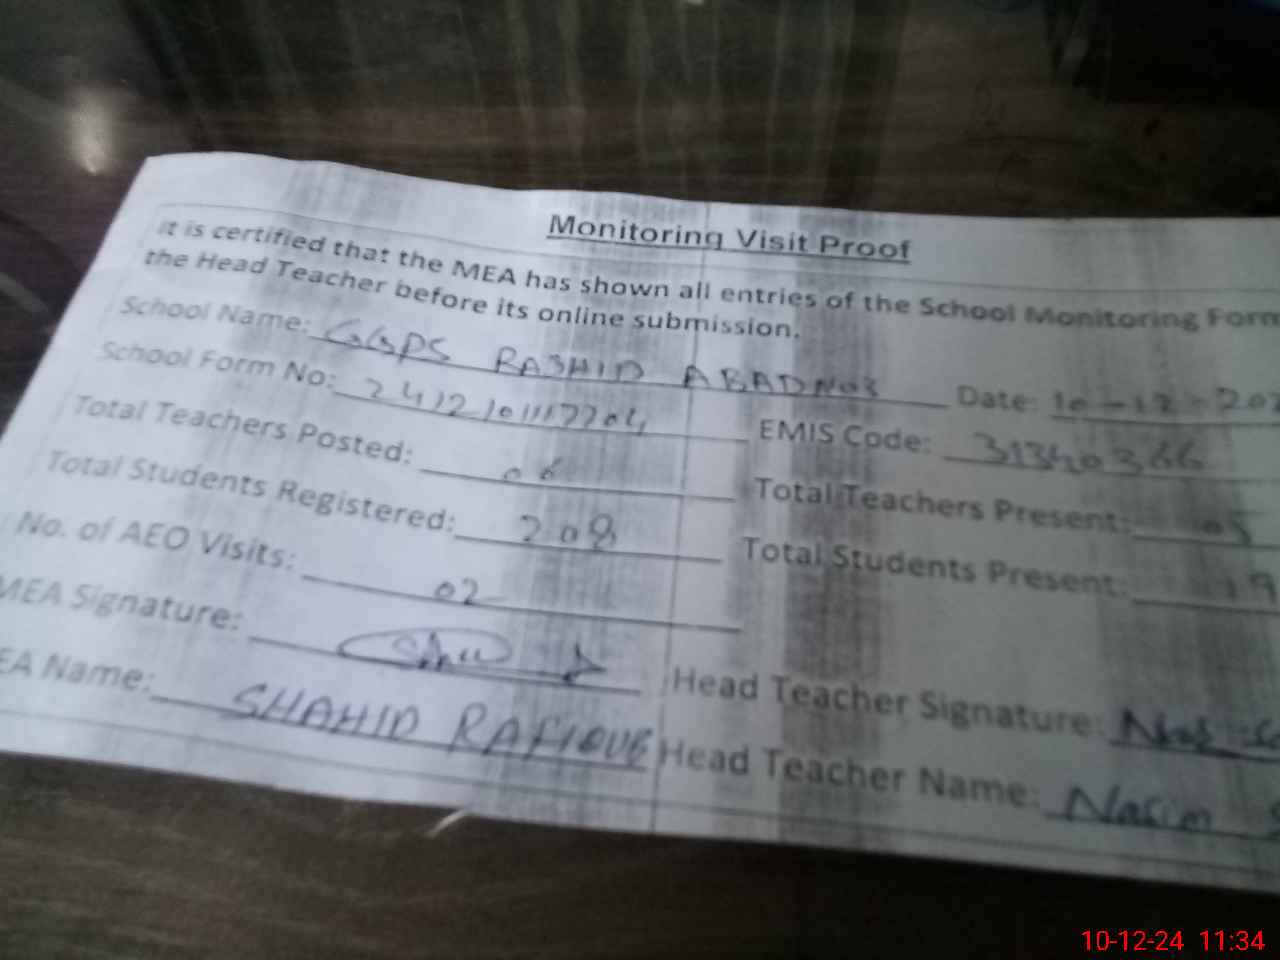 Monitoring Visit Proof
It is certified that the MEA has shown all entries of the School Monitoring Form
the Head Teacher before its online submission.
School Name: GGPS RASHID ABAD NO3 Date: 10-12-202
School Form No: EMIS Code: 31340366
Total Teachers Posted: 06 Total Teachers Present: 05
Total Students Registered: 208 Total Students Present: 19
No. of AEO Visits: 02
MEA Signature: Head Teacher Signature:
EA Name: SHAHID RAFIQUE Head Teacher Name: Nasim
10-12-24 11:34